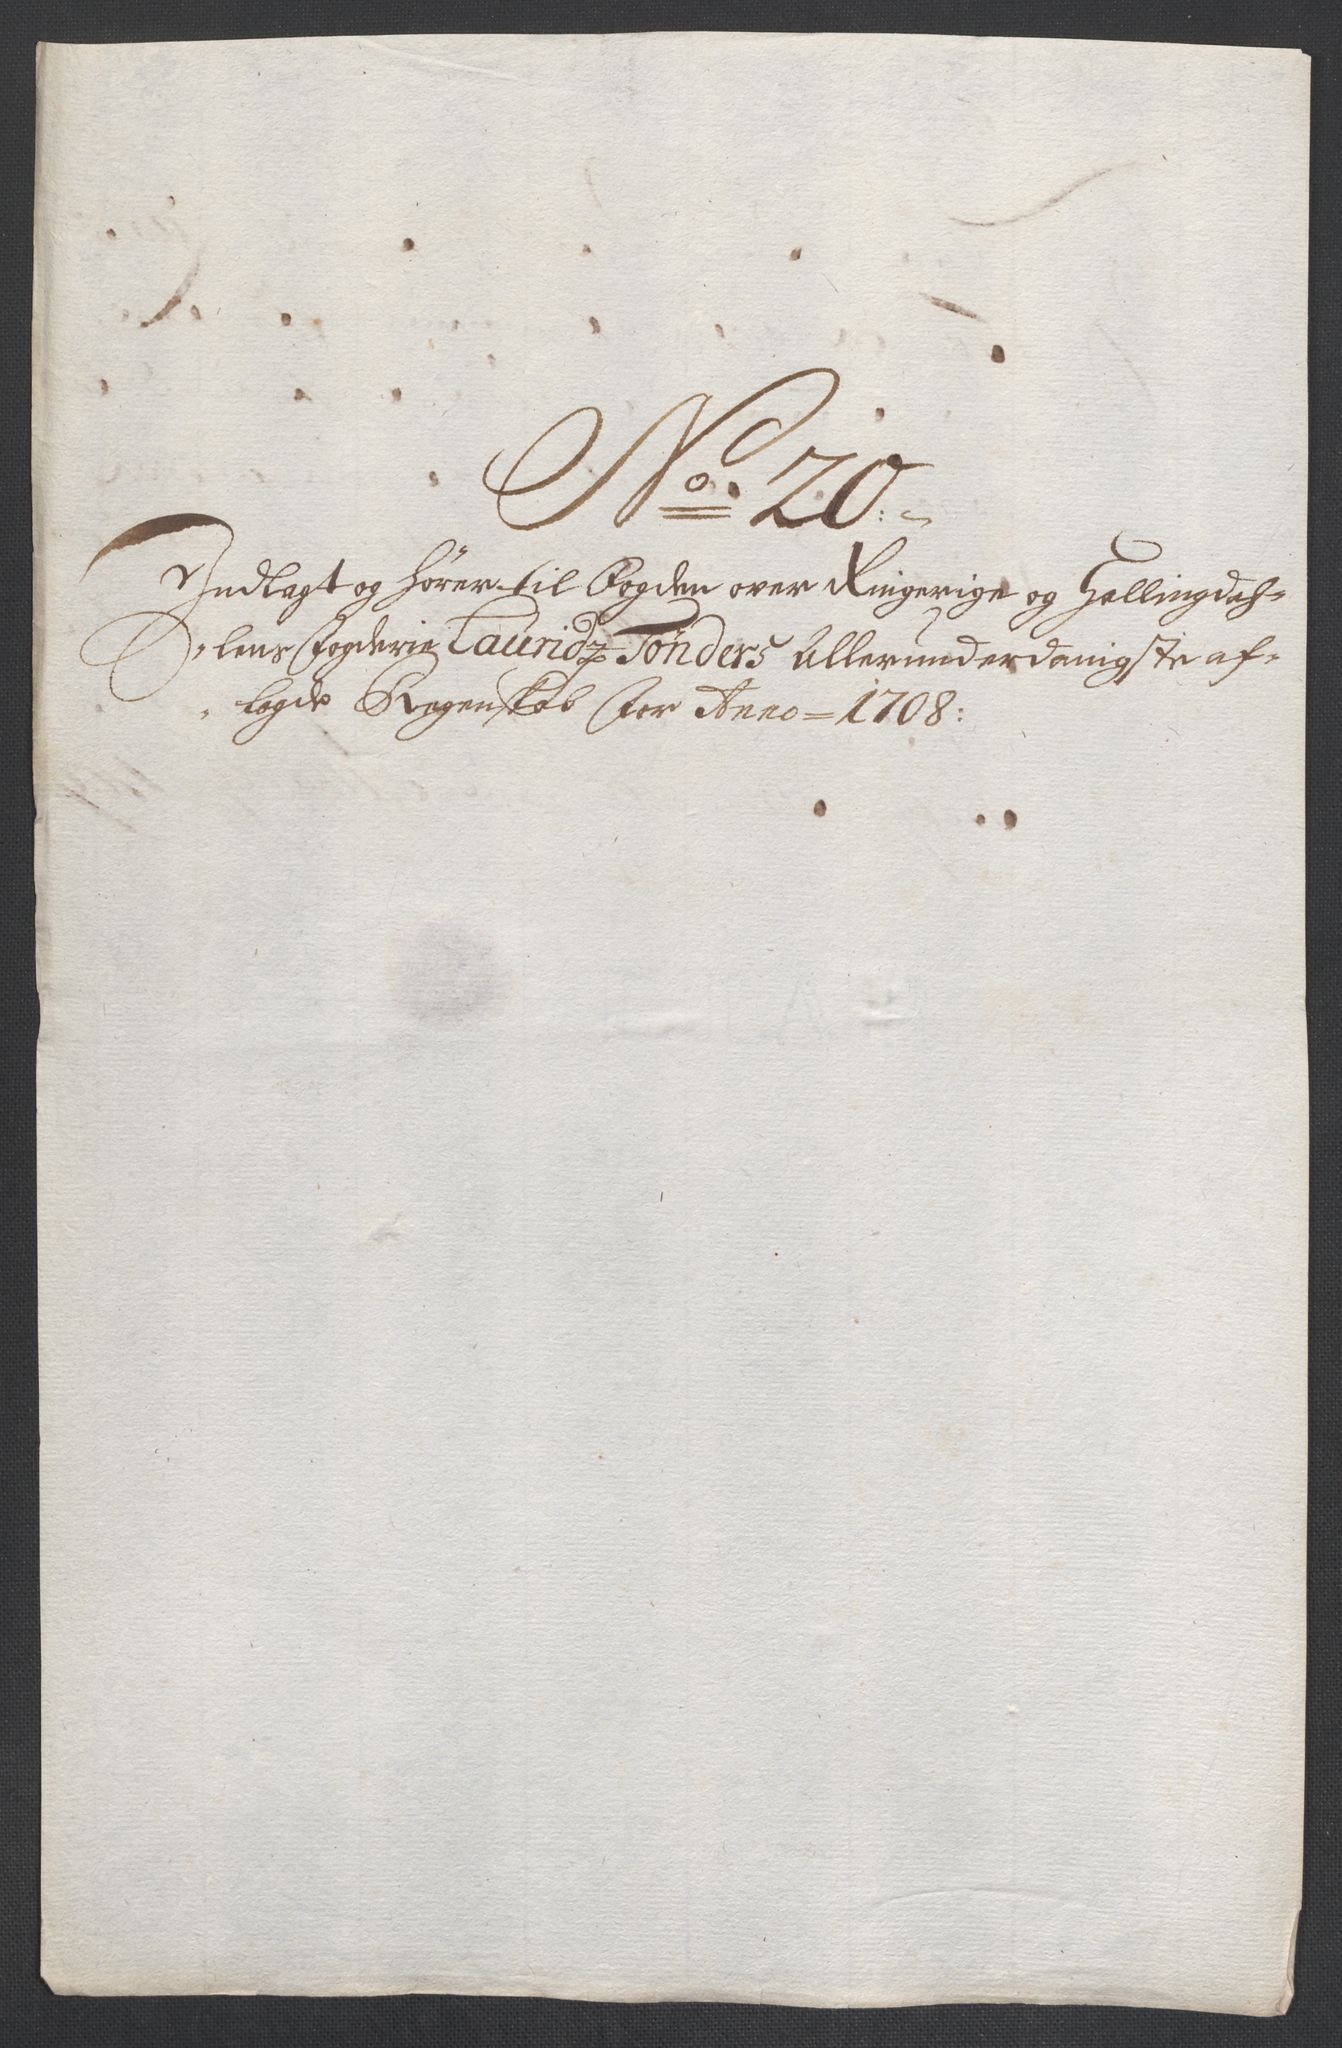 No. 20.
Indlagt og hører til Fogden over Ringerige og Hallingdah-
lens Fogderie Lauridz Tønders Allerunderdanigste af-
lagde Regenskab for Anno 1708: